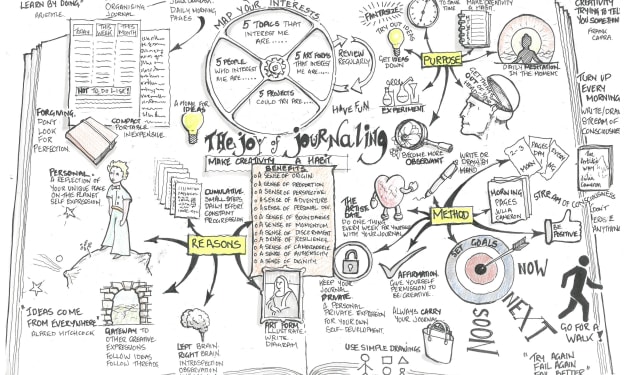 LEARN BY DOING"
ARISTOTLE.
ORGANISING
JOURNAL
DAILY MORNING
PAGES
TODAY
THIS
WEEK
THIS
MONTH
NOT TO DO LIST!
FORGIVING.
DON'T
LOOK
FOR
PERFECTION.
COMPACT
PORTABLE
INEXPENSIVE.
A HOME FOR
IDEAS
MAP YOUR INTERESTS
5 TOPICS THAT
INTEREST ME
ARE.....
5 PEOPLE
WHO INTEREST
ME ARE.....
5 ART FORMS
THAT INTEREST
ME ARE.....
5 PROJECTS
I COULD TRY ARE.....
REVIEW
REGULARLY
HAVE FUN
FANTASTIC
TRY OUT IDEAS
GET IDEAS
DOWN
TO DANCE
MAKE CREATIVITY
A HABIT
PURPOSE
DAILY MEDITATION
IN THE MOMENT.
EXPERIMENT
GET OUT OF YOUR HEAD
BECOME MORE
OBSERVANT
CREATIVITY
TRYING TO TELL
YOU SOMETHING
FRANK
CAPRA
TURN UP
EVERY
MORNING
WRITE/DRAW
STREAM OF
CONSCIOUSNESS
The Joy of Journaling
MAKE CREATIVITY A HABIT
BENEFITS
A SENSE OF ORIGIN
A SENSE OF PROPORTION
A SENSE OF PERSPECTIVE
A SENSE OF ADVENTURE
A SENSE OF PERSONAL
A SENSE OF BOUNDARIES
A SENSE OF MOMENTUM
A SENSE OF DISCERNMENT
A SENSE OF RESILIENCE
A SENSE OF CAMARADERIE
A SENSE OF AUTHENTICITY
A SENSE OF DIGNITY
PERSONAL...
A REFLECTION OF
YOUR UNIQUE PLACE
ON THE PLANET
SELF EXPRESSION
CUMULATIVE
SMALL STEPS
DAILY EFFORT
CONSTANT
PROGRESSION
REASONS
WRITE OR
DRAW BY
HAND
2-3
PAGES
DAY
EVERY
MORNING
PAGES
JULIA
CAMERON
The Artist's
WAY
Julia Cameron
THE
ARTIST
DATE
DO ONE THING
EVERY WEEK FOR YOURSELF
WITH YOUR JOURNAL
METHOD
STREAM OF CONSCIOUSNESS
DON'T
ANYTHING
BE
POSITIVE
SET GOALS
NOW
NEXT
SOON
GO FOR A
WALK!
"IDEAS COME
FROM EVERYWHERE"
ALFRED HITCHCOCK
GATEWAY TO
OTHER CREATIVE
EXPRESSIONS
FOLLOW IDEAS
FOLLOW THREADS
LEFT BRAIN
RIGHT BRAIN
INTROSPECTION
OBSERVATION
ART FORM
ILLUSTRATE
WRITE
DIAGRAM
KEEP YOUR
JOURNAL
PRIVATE
A PERSONAL
PRIVATE EXPRESSION
FOR YOUR OWN
SELF-DEVELOPMENT.
AFFIRMATION.
GIVE YOURSELF
PERMISSION TO
BE CREATIVE.
ALWAYS CARRY
YOUR JOURNAL
USE SIMPLE DRAWINGS
"TRY AGAIN
FAIL AGAIN
FAIL BETTER"